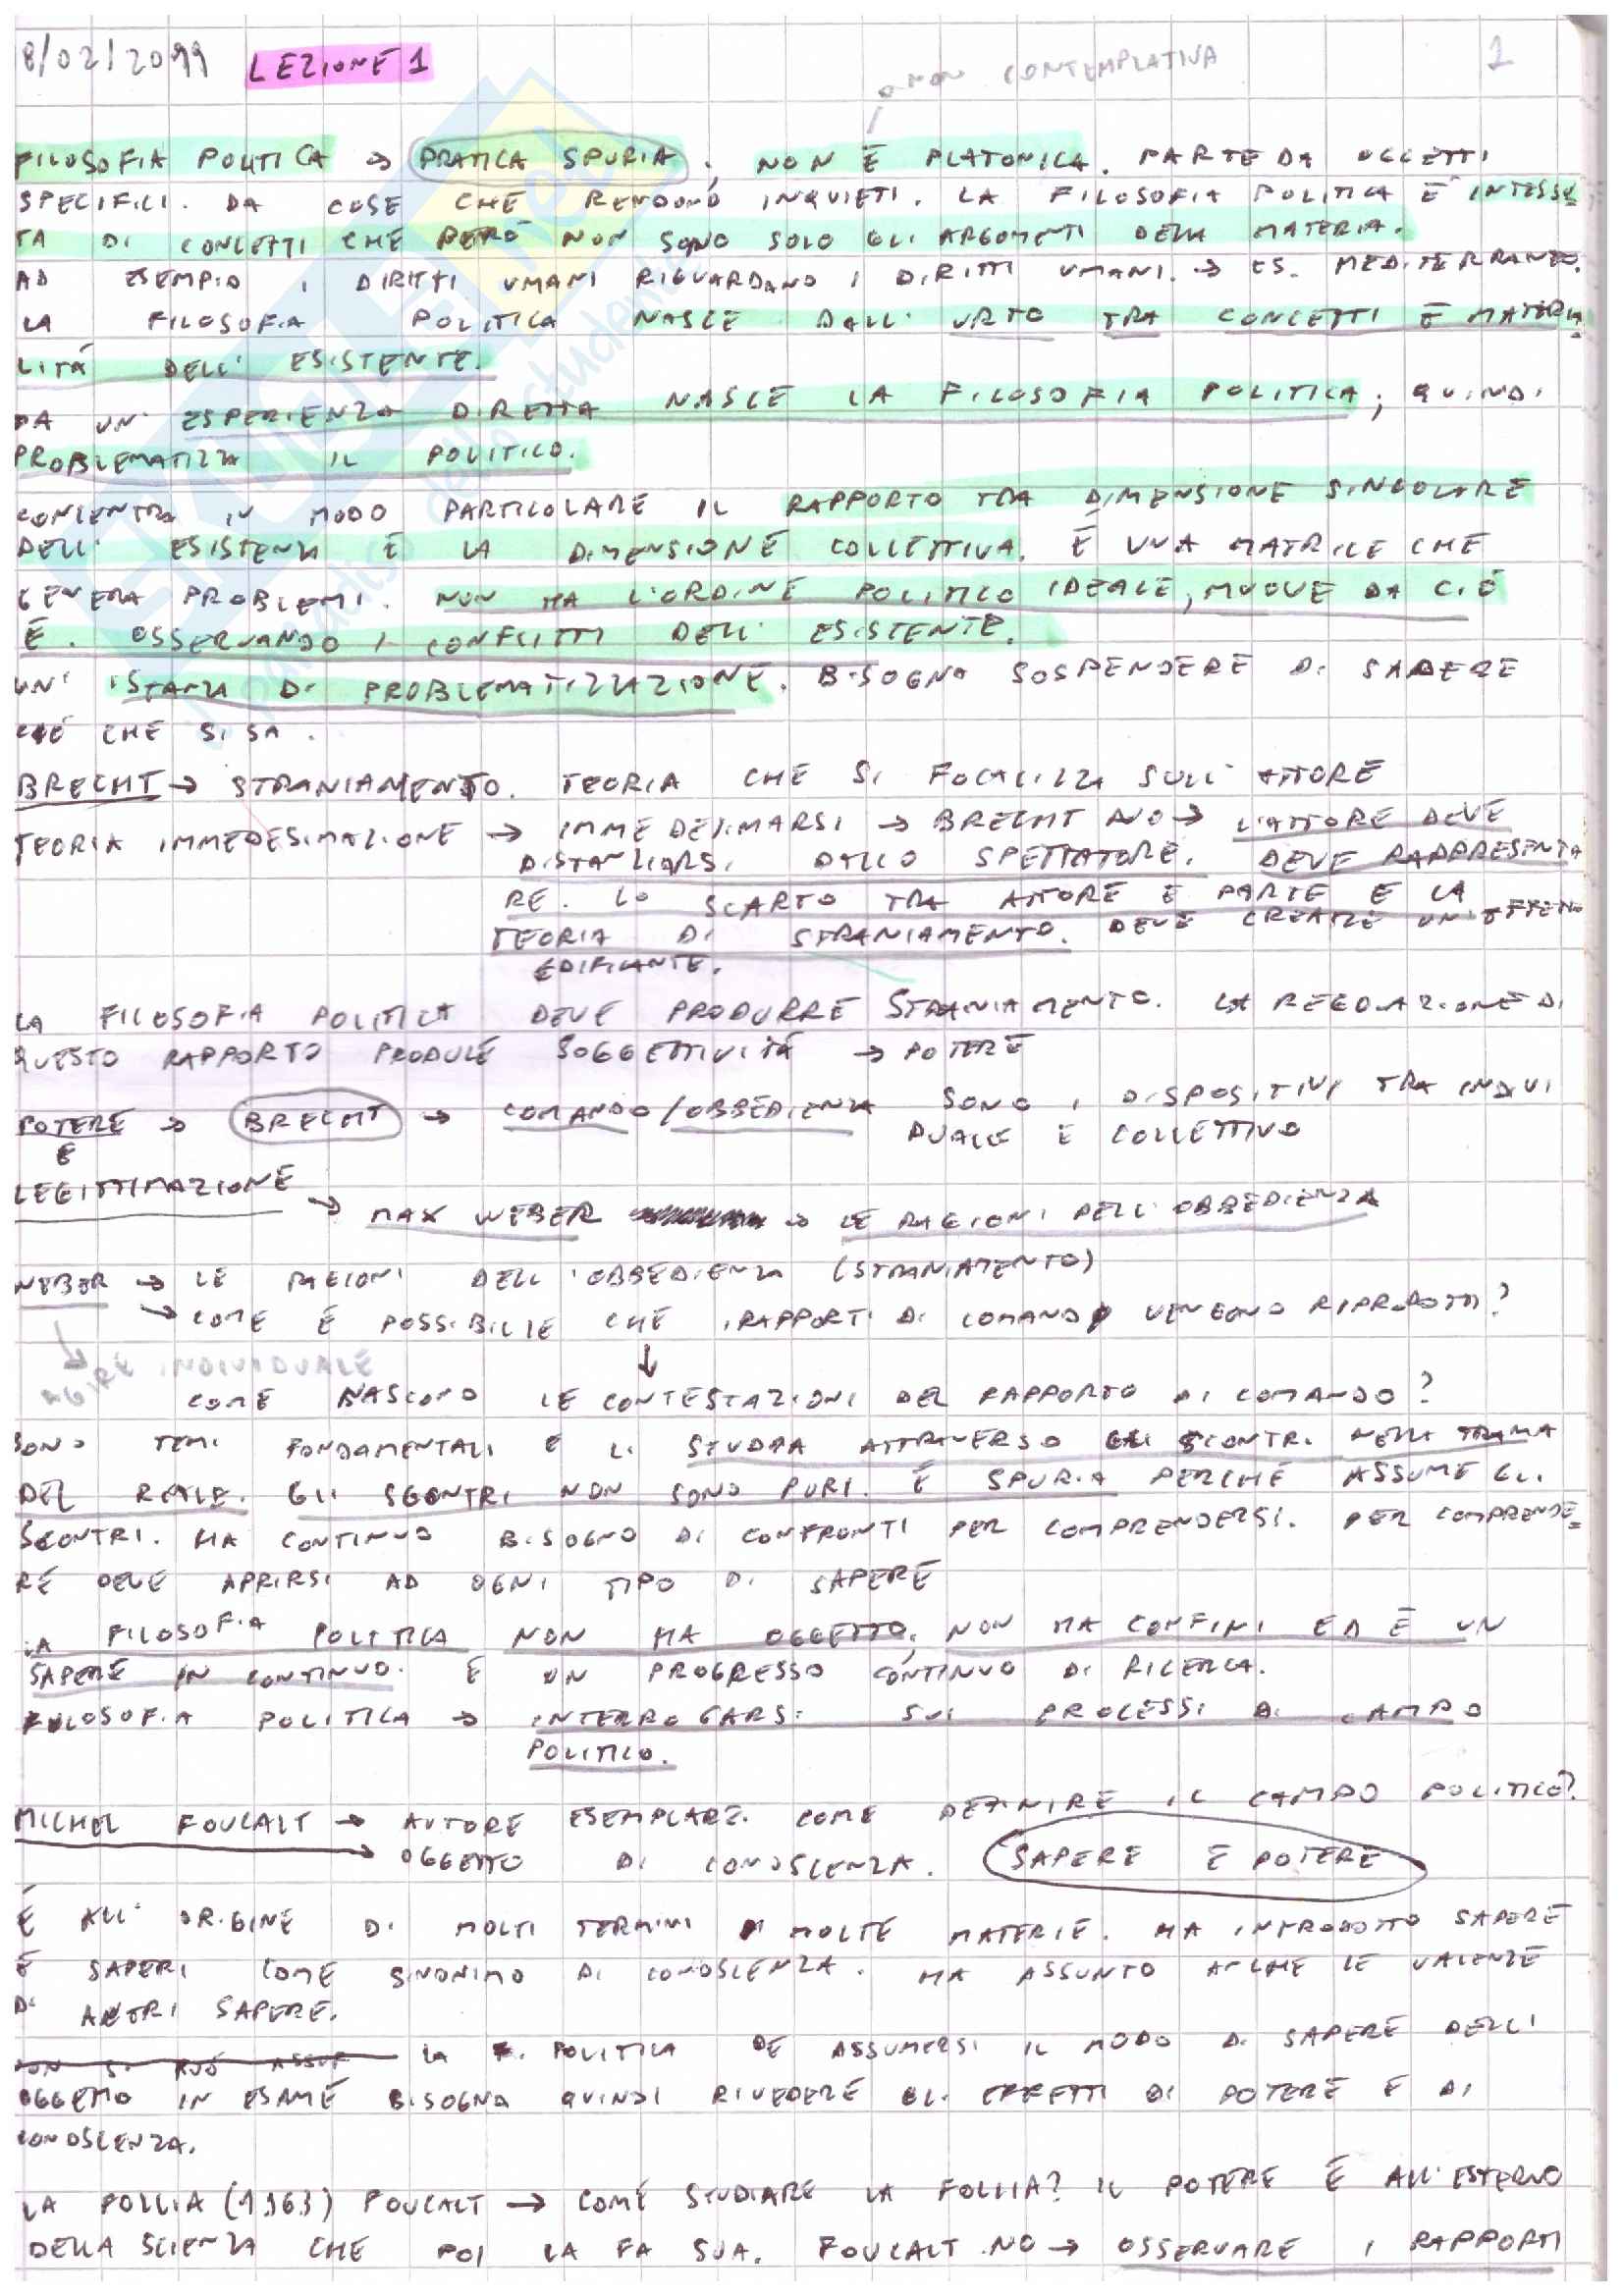 8/02/2019 LEZIONE 1
→ NON CONTEMPLATIVA
1
FILOSOFIA POLITICA → PRATICA SPURIA, NON È PLATONICA. PARTE DA OGGETTI
SPECIFICI. DA COSE CHE RENDONO INQUIETI. LA FILOSOFIA POLITICA È INTESSU
TA DI CONCETTI CHE PERÒ NON SONO SOLO GLI ARGOMENTI DELLA MATERIA.
AD ESEMPIO I DIRITTI UMANI RIGUARDANO I DIRITTI UMANI. → ES. MEDITERRANEO.
LA FILOSOFIA POLITICA NASCE DALL'URTO TRA CONCETTI E MATERIA
LITÀ DELL'ESISTENTE.
DA UN'ESPERIENZA DIRETTA NASCE LA FILOSOFIA POLITICA, QUINDI
PROBLEMATIZZA IL POLITICO.
CONCENTRA IN MODO PARTICOLARE IL RAPPORTO TRA DIMENSIONE SINGOLARE
DELL'ESISTENZA E LA DIMENSIONE COLLETTIVA. È UNA MATRICE CHE
GENERA PROBLEMI. NON HA L'ORDINE POLITICO IDEALE, MUOVE DA CIÒ
È. OSSERVANDO I CONFLITTI DELL'ESISTENTE.
UN'ISTANZA DI PROBLEMATIZZAZIONE. BISOGNA SOSPENDERE DI SAPERE
CIÒ CHE SI SA.
BRECHT → STRANIAMENTO. TEORIA CHE SI FOCALIZZA SULL'ATTORE
TEORIA IMMEDESIMAZIONE → IMMEDESIMARSI → BRECHT NO → L'ATTORE DEVE
DISTANZIARSI DALLO SPETTATORE. DEVE RAPPRESENTA
RE. LO SCARTO TRA ATTORE E PARTE E LA
TEORIA DI STRANIAMENTO. DEVE CREARE UN'EFFETTO
EDIFICANTE.
LA FILOSOFIA POLITICA DEVE PRODURRE STRANIAMENTO. LA REGOLAZIONE DI
QUESTO RAPPORTO PRODUCE SOGGETTIVITÀ → POTERE
POTERE → BRECHT → COMANDO/OBBEDIENZA SONO I DISPOSITIVI TRA INDIVI
DUALE E COLLETTIVO
E
LEGITTIMAZIONE
→ MAX WEBER → LE RAGIONI DELL'OBBEDIENZA
WEBER → LE RAGIONI DELL'OBBEDIENZA (STRANIAMENTO)
→ COME È POSSIBILIE CHE I RAPPORTI DI COMANDO VENGONO RIPRODOTTI?
↓
AGIRE INDIVIDUALE
COME NASCONO LE CONTESTAZIONI DEL RAPPORTO DI COMANDO?
SONO TEMI FONDAMENTALI E LI STUDIA ATTRAVERSO GLI SCONTRI NELLA TRAMA
DEL REALE. GLI SCONTRI NON SONO PURI. È SPURIA PERCHÉ ASSUME GLI
SCONTRI. HA CONTINUO BISOGNO DI CONFRONTI PER COMPRENDERSI. PER COMPRENDE=
RE DEVE APRIRSI AD OGNI TIPO DI SAPERE
LA FILOSOFIA POLITICA NON HA OGGETTO, NON HA CONFINI ED È UN
SAPERE IN CONTINUO. È UN PROGRESSO CONTINUO DI RICERCA.
FILOSOFIA POLITICA → INTERROGARSI SUI PROCESSI DI CAMPO
POLITICO.
MICHEL FOUCALT → AUTORE ESEMPLARE. COME DEFINIRE IL CAMPO POLITICO?
→ OGGETTO DI CONOSCENZA. SAPERE E POTERE
È ALL'ORIGINE DI MOLTI TERMINI MOLTE MATERIE. HA INTRODOTTO SAPERE
E SAPERI COME SINONIMO DI CONOSCENZA. HA ASSUNTO ANCHE LE VALENZE
DI ALTRI SAPERE.
NON SI PUÒ ASSUF LA F. POLITICA DE ASSUMERSI IL MODO DI SAPERE DELL'
OGGETTO IN ESAME BISOGNA QUINDI RIVEDERE GLI EFFETTI DI POTERE E DI
CONOSCENZA.
LA FOLLIA (1963) FOUCALT → COME STUDIARE LA FOLLIA? IL POTERE È ALL'ESTERNO
DELLA SCIENZA CHE POI LA FA SUA. FOUCALT NO → OSSERVARE I RAPPORTI